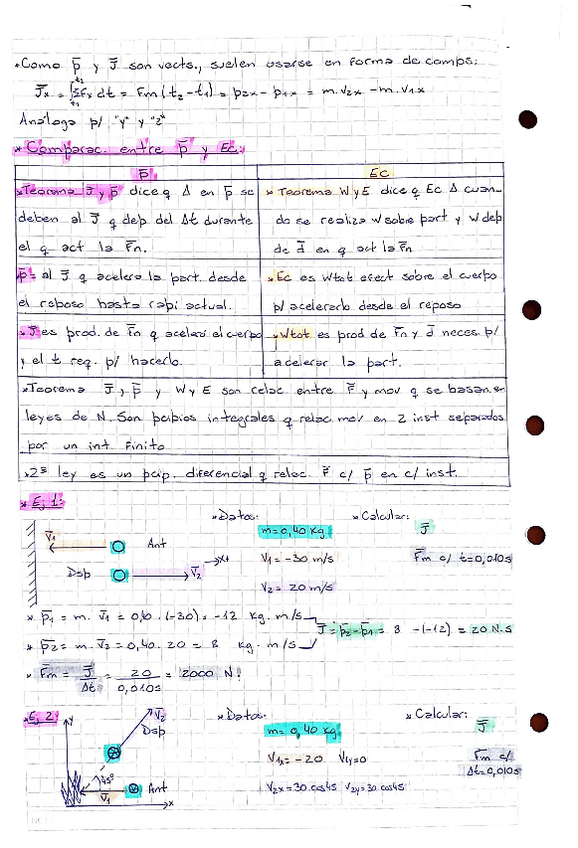 *Como p̄ y J̄ son vects., suelen usarse en forma de comps:
J̄x = ∫t1 t2 ΣFx dt = Fm (t2 - t1) = p2x - p1x = m. v2x - m. v1x
Análoga p/ "y" y "z"
* Comparac. entre p̄ y Ec:
p̄ Ec
*Teorema J̄ y p̄ dice q Δ en p̄ se
deben al J̄ q dep del Δt durante
el q act la F̄n.
* Teorema W y E dice q Ec Δ cuan-
do se realiza W sobre part y W dep
de d̄ en q act la F̄n.
p̄ = al J̄ q acelera la part. desde
el reposo hasta rapi actual.
*Ec es Wtot efect sobre el cuerpo
p/ acelerarlo desde el reposo
*J̄ es prod. de F̄n q aceleró el cuerpo
y el t req. p/ hacerlo.
*Wtot es prod de F̄n y d̄ neces. p/
acelerar la part.
*Teorema J̄, p̄ y W y E son relac. entre F̄ y mov q se basan en
leyes de N. Son pcipios integrales q relac. mov en 2 inst separados
por un int. finito
*2ª ley es un pcip. diferencial q relac. F̄ c/ p̄ en c/ inst.
* Ej 1:
*Datos: *Calcular:
m = 0,40 kg J̄
V̄1 Ant V1 = -30 m/s F̄m c/ t=0,010s
→x+
Dsp V̄2 V2 = 20 m/s
* p̄1 = m. V̄1 = 0,40. (-30) = -12 kg. m/s
J̄ = p̄2 - p̄1 = 8 - (-12) = 20 N.s
* p̄2 = m. V̄2 = 0,40. 20 = 8 kg. m/s
* F̄m = J̄/Δt = 20/0,010s = 2000 N
*Ej 2: *Datos: *Calcular:
y V̄2
Dsp m = 0,40 kg J̄
V1x = -20 V1y = 0 F̄m c/
Δt = 0,010s
45° Ant V2x = 30.cos45 V2y = 30.cos45
V̄1 x